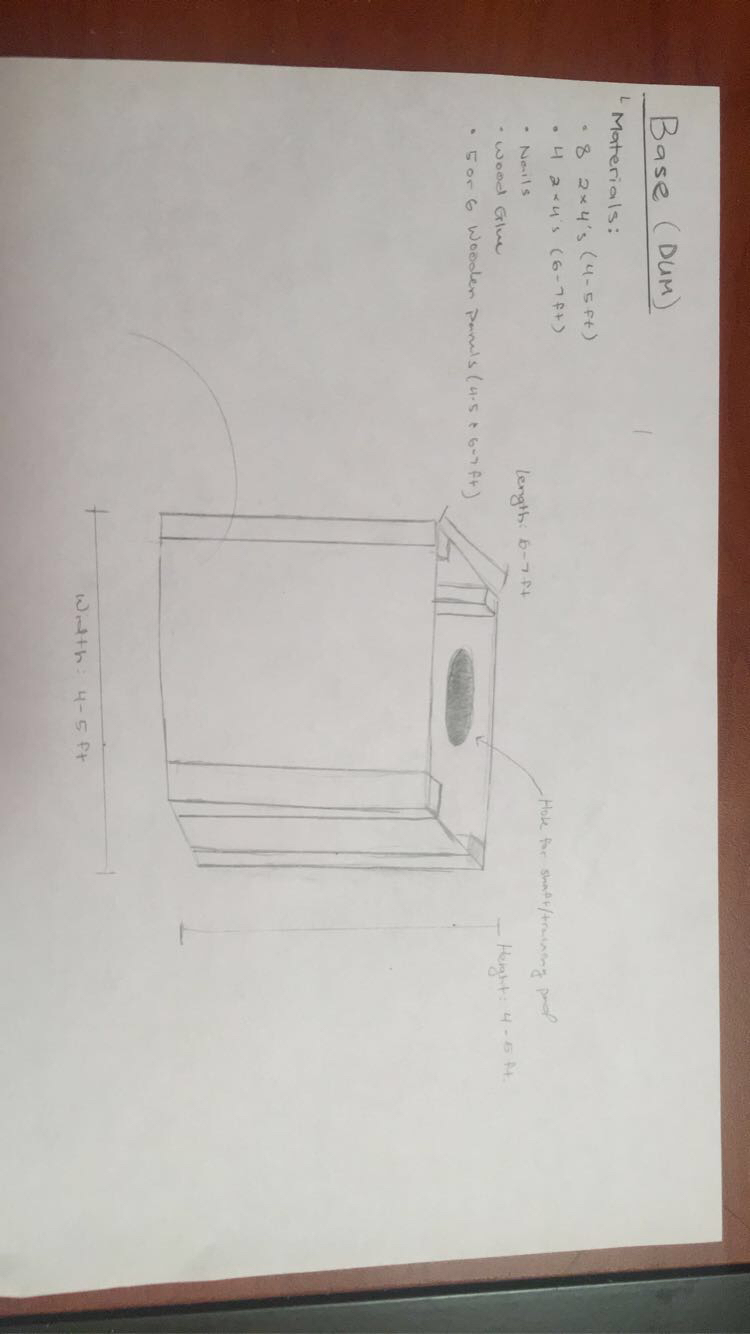 Base (DUM)
Materials:
• 8 2x4's (4-5ft)
• 4 2x4's (6-7ft)
• Nails
• Wood Glue
• 5 or 6 Wooden Panels (4-5 & 6-7ft)
Length: 6-7ft
Hole for shaft/training
Height: 4-5 ft.
Width: 4-5 ft